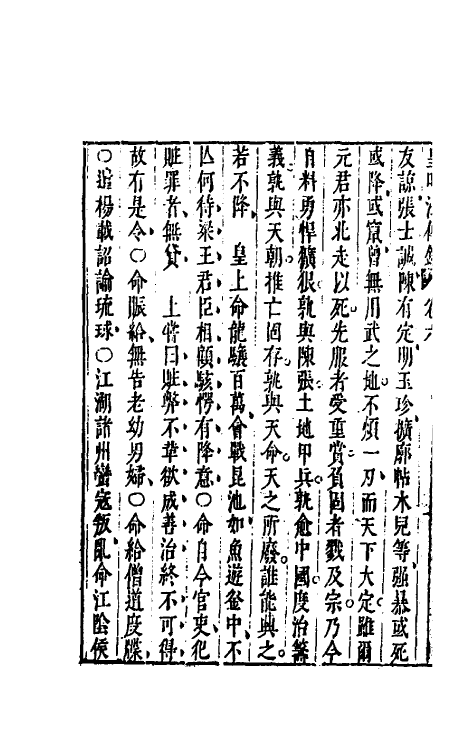 皇明法傳錄 卷六
友諒張士誠陳有定明玉珍擴廓帖木兒等强暴或死
或降或竄曾無用武之地不煩一刃而天下大定雖爾
元君亦北走以死先服者受重賞負固者戮及宗乃今
自料勇悍獷狠孰與陳張土地甲兵孰愈中國度治籌
義孰與天朝推亡固存孰與天命天之所廢誰能興之
若不降 皇上命龍驤百萬會戰昆池如魚遊釜中不
亾何待梁王君臣相顧駭愕有降意○命自今官吏犯
賍罪者無貸 上嘗曰賍弊不革欲成善治終不可得
故有是令○命賑給無告老幼男婦○命給僧道度牒
○遣楊載詔諭琉球○江湖諸州蠻寇叛亂命江陰侯